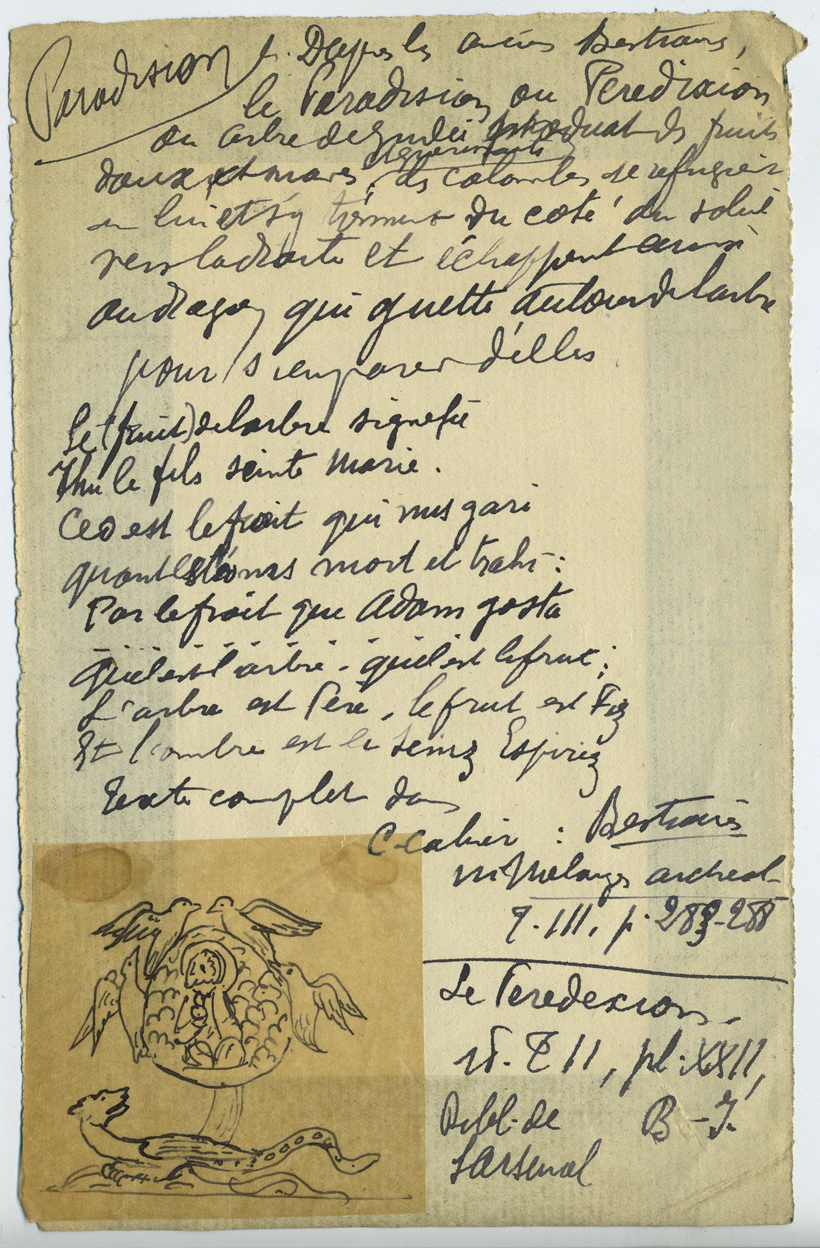 Paradision
D'après les anciens Bestiaires,
le Paradision ou Peredixion
ou arbre de produit des fruits
doux des colombes se refugient
en lui et s'y tiennent du coté du soleil
vers la droite et échappent ainsi
au dragon qui guette autour de l'arbre
pour s'emparer d'elles
Le (fruit) de l'arbre signefie
Jhu le fils seinte Marie.
Ceo est le fruit qui nus gari
quant mort et trahi :
Par le froit que Adam gosta
quel est l'arbre - quel est le frut ;
L'arbre est Pere, le frut est Fiz
Et l'ombre est le Seinz Espiriz
Texte complet dans
C. cahier : Bestiaires
in Mélanges archeol
T. III, p. 283-288
Le Peredexion.
id. T II, pl. XXII,
Bibl. de B-F.
l'Arsenal